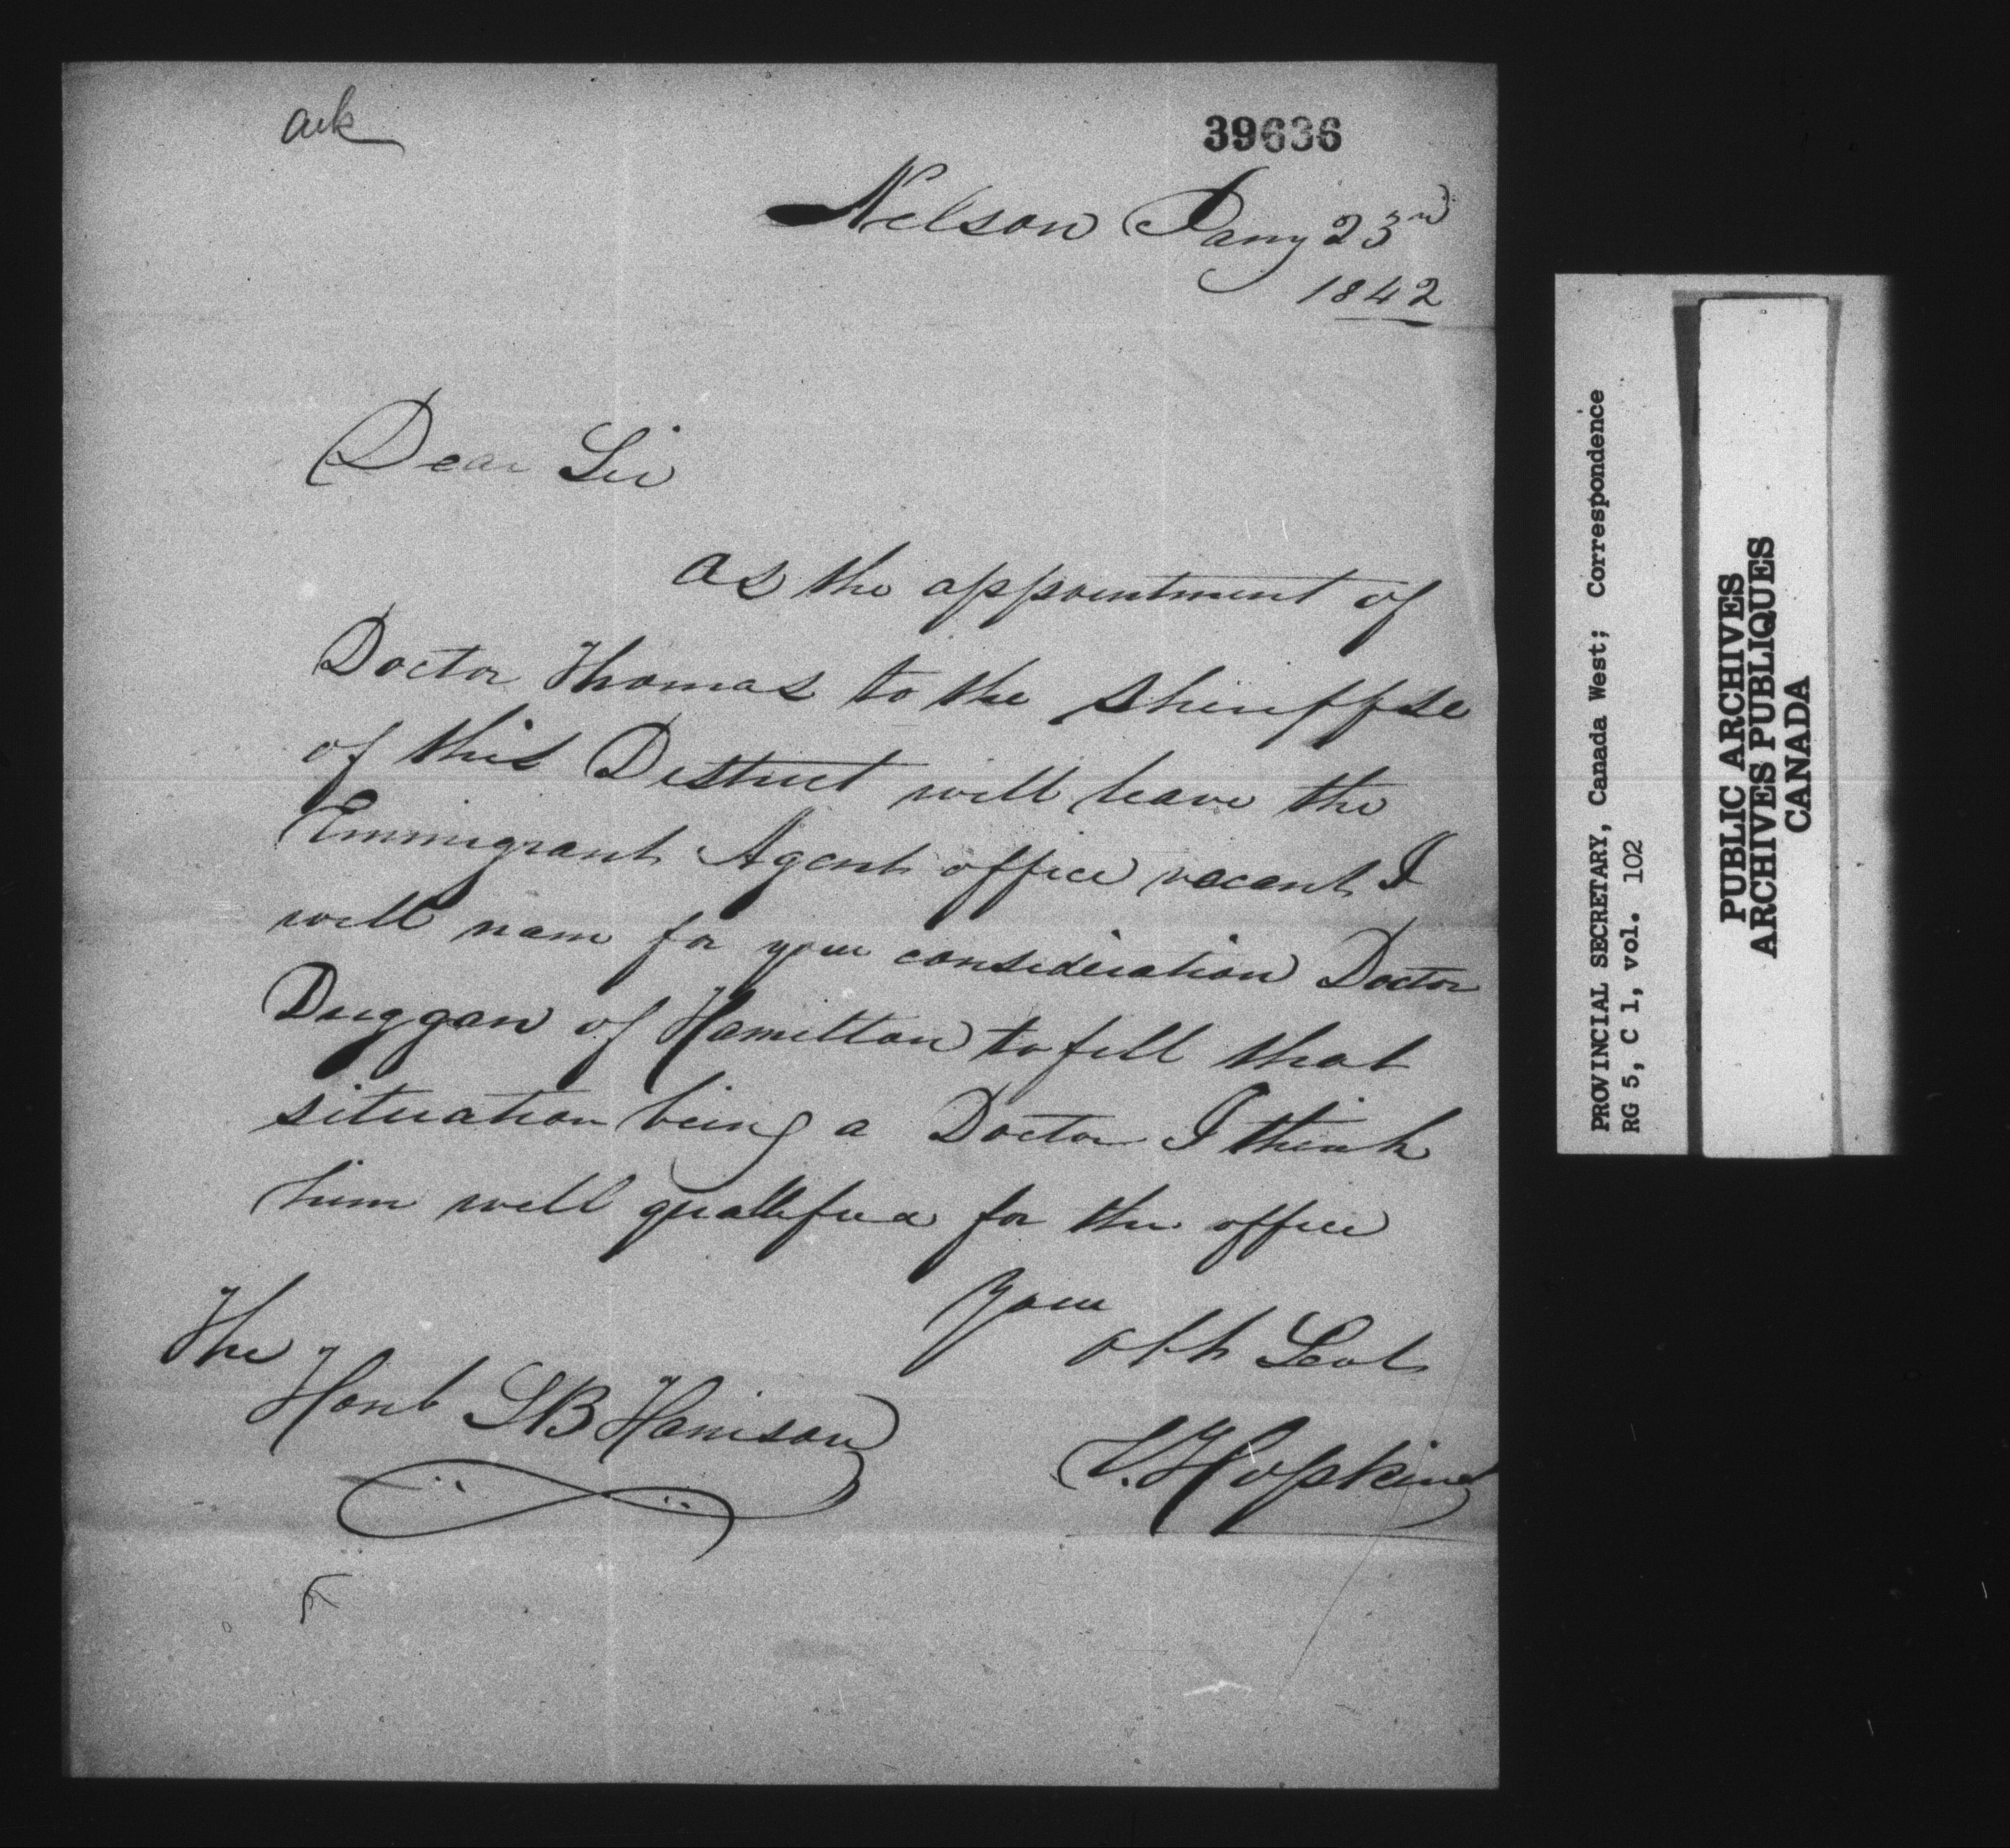 ack
39636
Nelson Jany 23rd
1842
Dear Sir
As the appointment of
Doctor Thomas to the Sheriffse
of this District will leave the
Emmigrant Agent office vacant I
will name for your consideration Doctor
Duggan of Hamilton to fill that
situation being a Doctor I think
him well quallified for the office
Your
obt Sevt
The
Honb SB Harrison
Hopkins
PROVINCIAL SECRETARY, Canada West; Correspondence
RG 5, C 1, vol. 102
PUBLIC ARCHIVES
ARCHIVES PUBLIQUES
CANADA